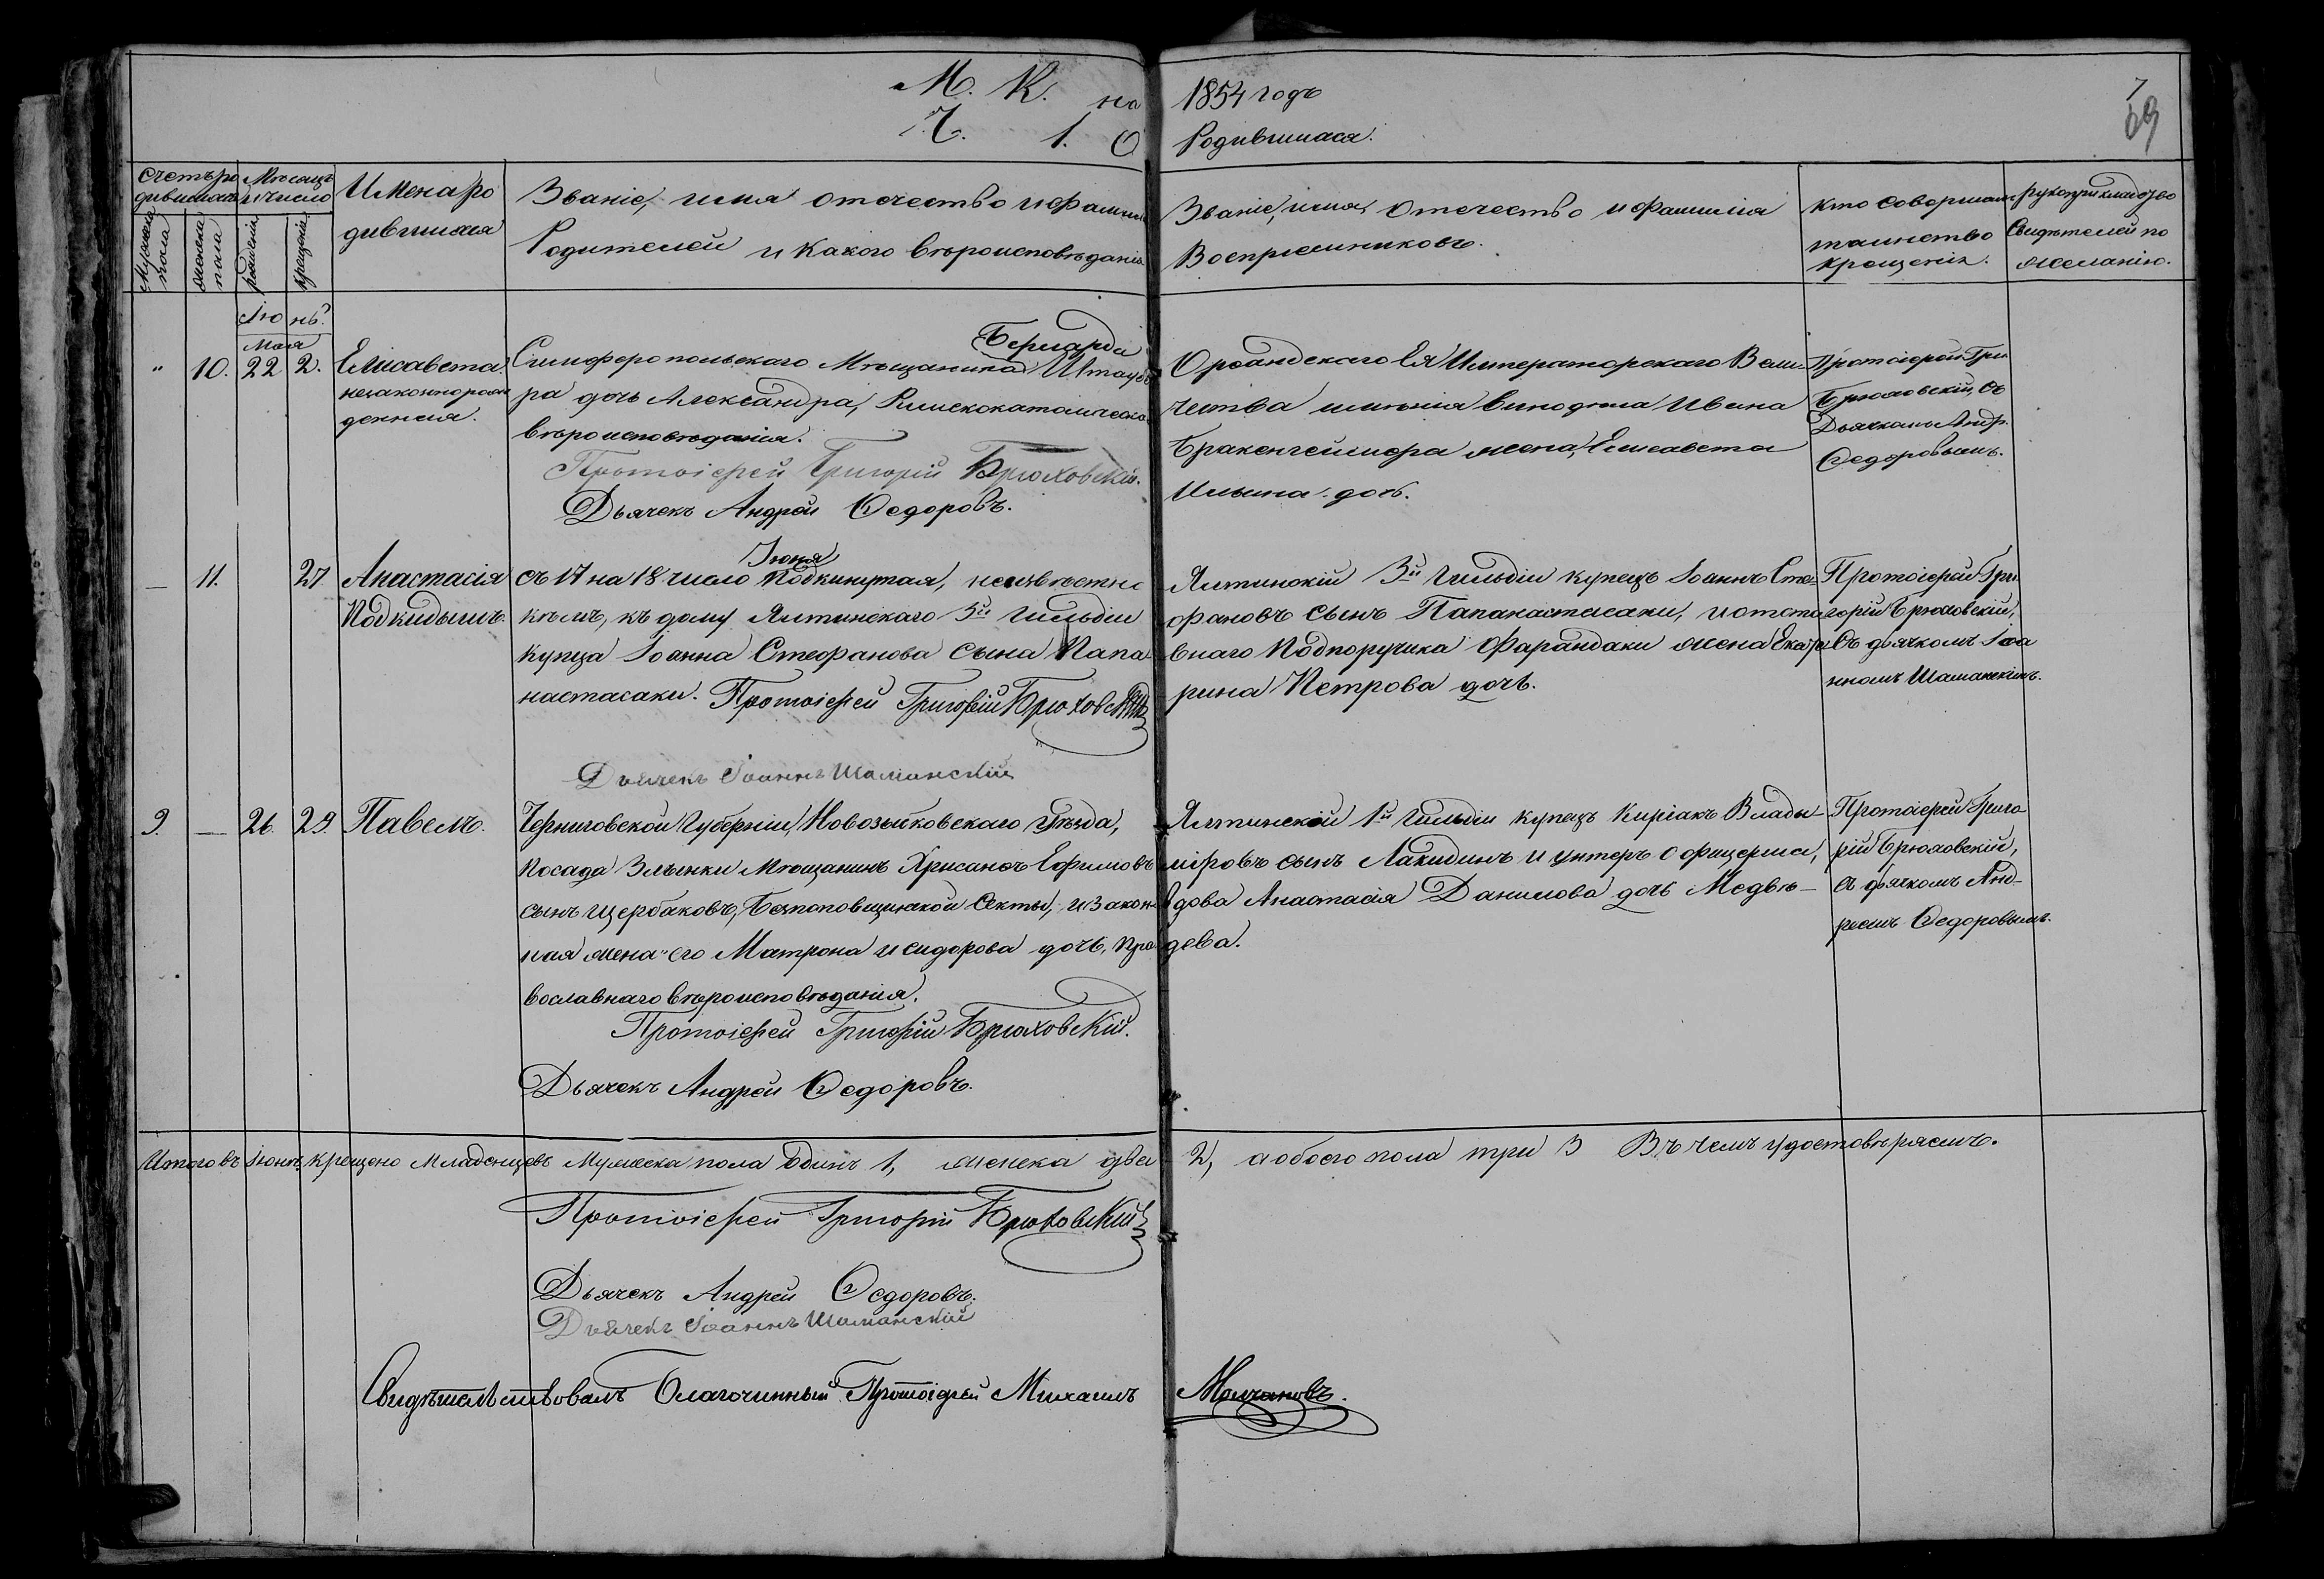 М. К. на 1854 годъ
Ч. 1. О Родившихся.
7
69
Счетъ родившихся
Мѣсяцъ и число
Имена родившихся
Званіе, имя отечество и фамилія
Родителей и какого вѣроисповѣданія
Званіе, имя, отечество и фамилія
Воспріемниковъ.
Кто совершалъ
таинство
крещенія.
рукоприкладство
Свидѣтелей по
желанію.
Мужеска пола
женска пола
рожденія
крещенія
Іюнь.
Мая
" 10. 22 2.
Елисавета
незаконнорожденная.
Бернарда
Симферопольскаго Мѣщанина
ра дочь Александра, Римскокатолическа
вѣроисповѣданія.
Протоіерей Григорій Брюховскій.
Дьячекъ Андрей Ѳедоровъ.
Ореандскаго Ея Императорскаго Вели-
чества имѣнія винодѣла Ивана
жена, Елисавета
Ильина дочь.
Протоіерей Гри
Брюховскій, съ
Дьячкомъ Андр.
Ѳедоровымъ.
— 11. 27.
Анастасія
Подкидышъ.
Іюня
съ 17 на 18 число подкинутая, неизвѣстно
кѣмъ, къ дому Ялтинскаго 3й Гильдіи
купца Іоанна Стефанова сына Папа
настасаки. Протоіерей Григорій Брюховскій
Дьячекъ Іоаннъ Шаманскій
Ялтинскій 3й Гильдіи купецъ Іоаннъ Сте-
фановъ сынъ Папанастасаки, и отста
внаго Подпоручика Фарандаки жена Екате
рина Петрова дочь.
Протоіерей Гри
горій Брюховскій,
Съ дьячкомъ Іоа
нномъ Шаманскимъ.
9. — 26. 29.
Павелъ.
Черниговской Губерніи, Новозыбковскаго Уѣзда,
посада Злынки Мѣщанинъ Хрисанѳъ Ефимовъ
сынъ Щербаковъ, Безпоповщинской Секты, и закон-
ная жена его Матрона Исидорова дочь, пра
вославнаго вѣроисповѣданія.
Протоіерей Григорій Брюховскій.
Дьячекъ Андрей Ѳедоровъ.
Ялтинскій 1й Гильдіи купецъ Киріакъ Влады-
міровъ сынъ Лакидинъ и унтеръ офицерша,
вдова Анастасія Данилова дочь Медвѣ-
дева.
Протоіерей Григо
рій Брюховскій,
съ дьячкомъ Анд-
реемъ Ѳедоровымъ.
Итого въ Іюнѣ крещено Младенцевъ Мужеска пола Одинъ 1, женска два 2, а обоего пола три 3 Въ чемъ удостовѣряемъ.
Протоіерей Григорій Брюховскій
Дьячекъ Андрей Ѳедоровъ.
Дьячекъ Іоаннъ Шаманскій
Свидѣтельствовалъ Благочинный Протоіерей Михаилъ Молчановъ.